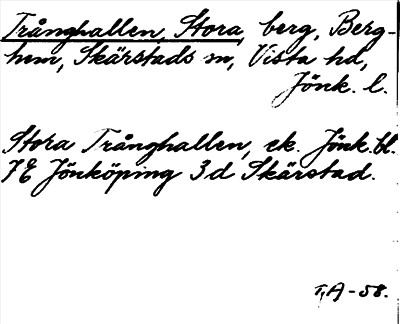 Trånghallen, Stora, berg, Berg-
hem, Skärstads sn, Vista hd,
Jönk. l.
Stora Trånghallen, ek. Jönk. bl.
7E Jönköping 3d Skärstad.
T,A -58.